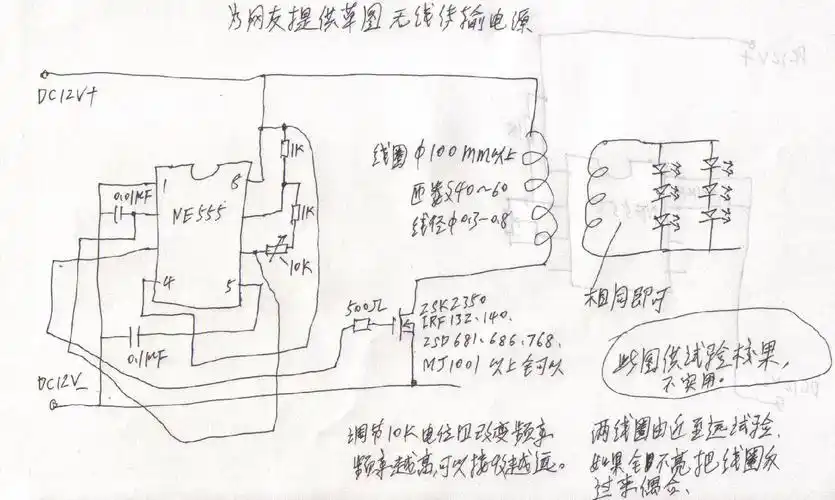 为网友提供草图无线传输电源
DC12V+
1
8
0.01MF
NE555
1K
1K
10K
4
5
0.1MF
DC12V-
线圈φ100mm以上
匝数540~60
线径φ0.3-0.8
相同即可
500Ω
2SK2350
IRF132.140.
2SD681.686.768.
MJ1001以上全可以
此图供试验效果,
不实用。
调节10K电位口改变频率
频率越高可以接收越远。
两线圈由近至远试验.
如果全不亮把线圈反
过来偶合.